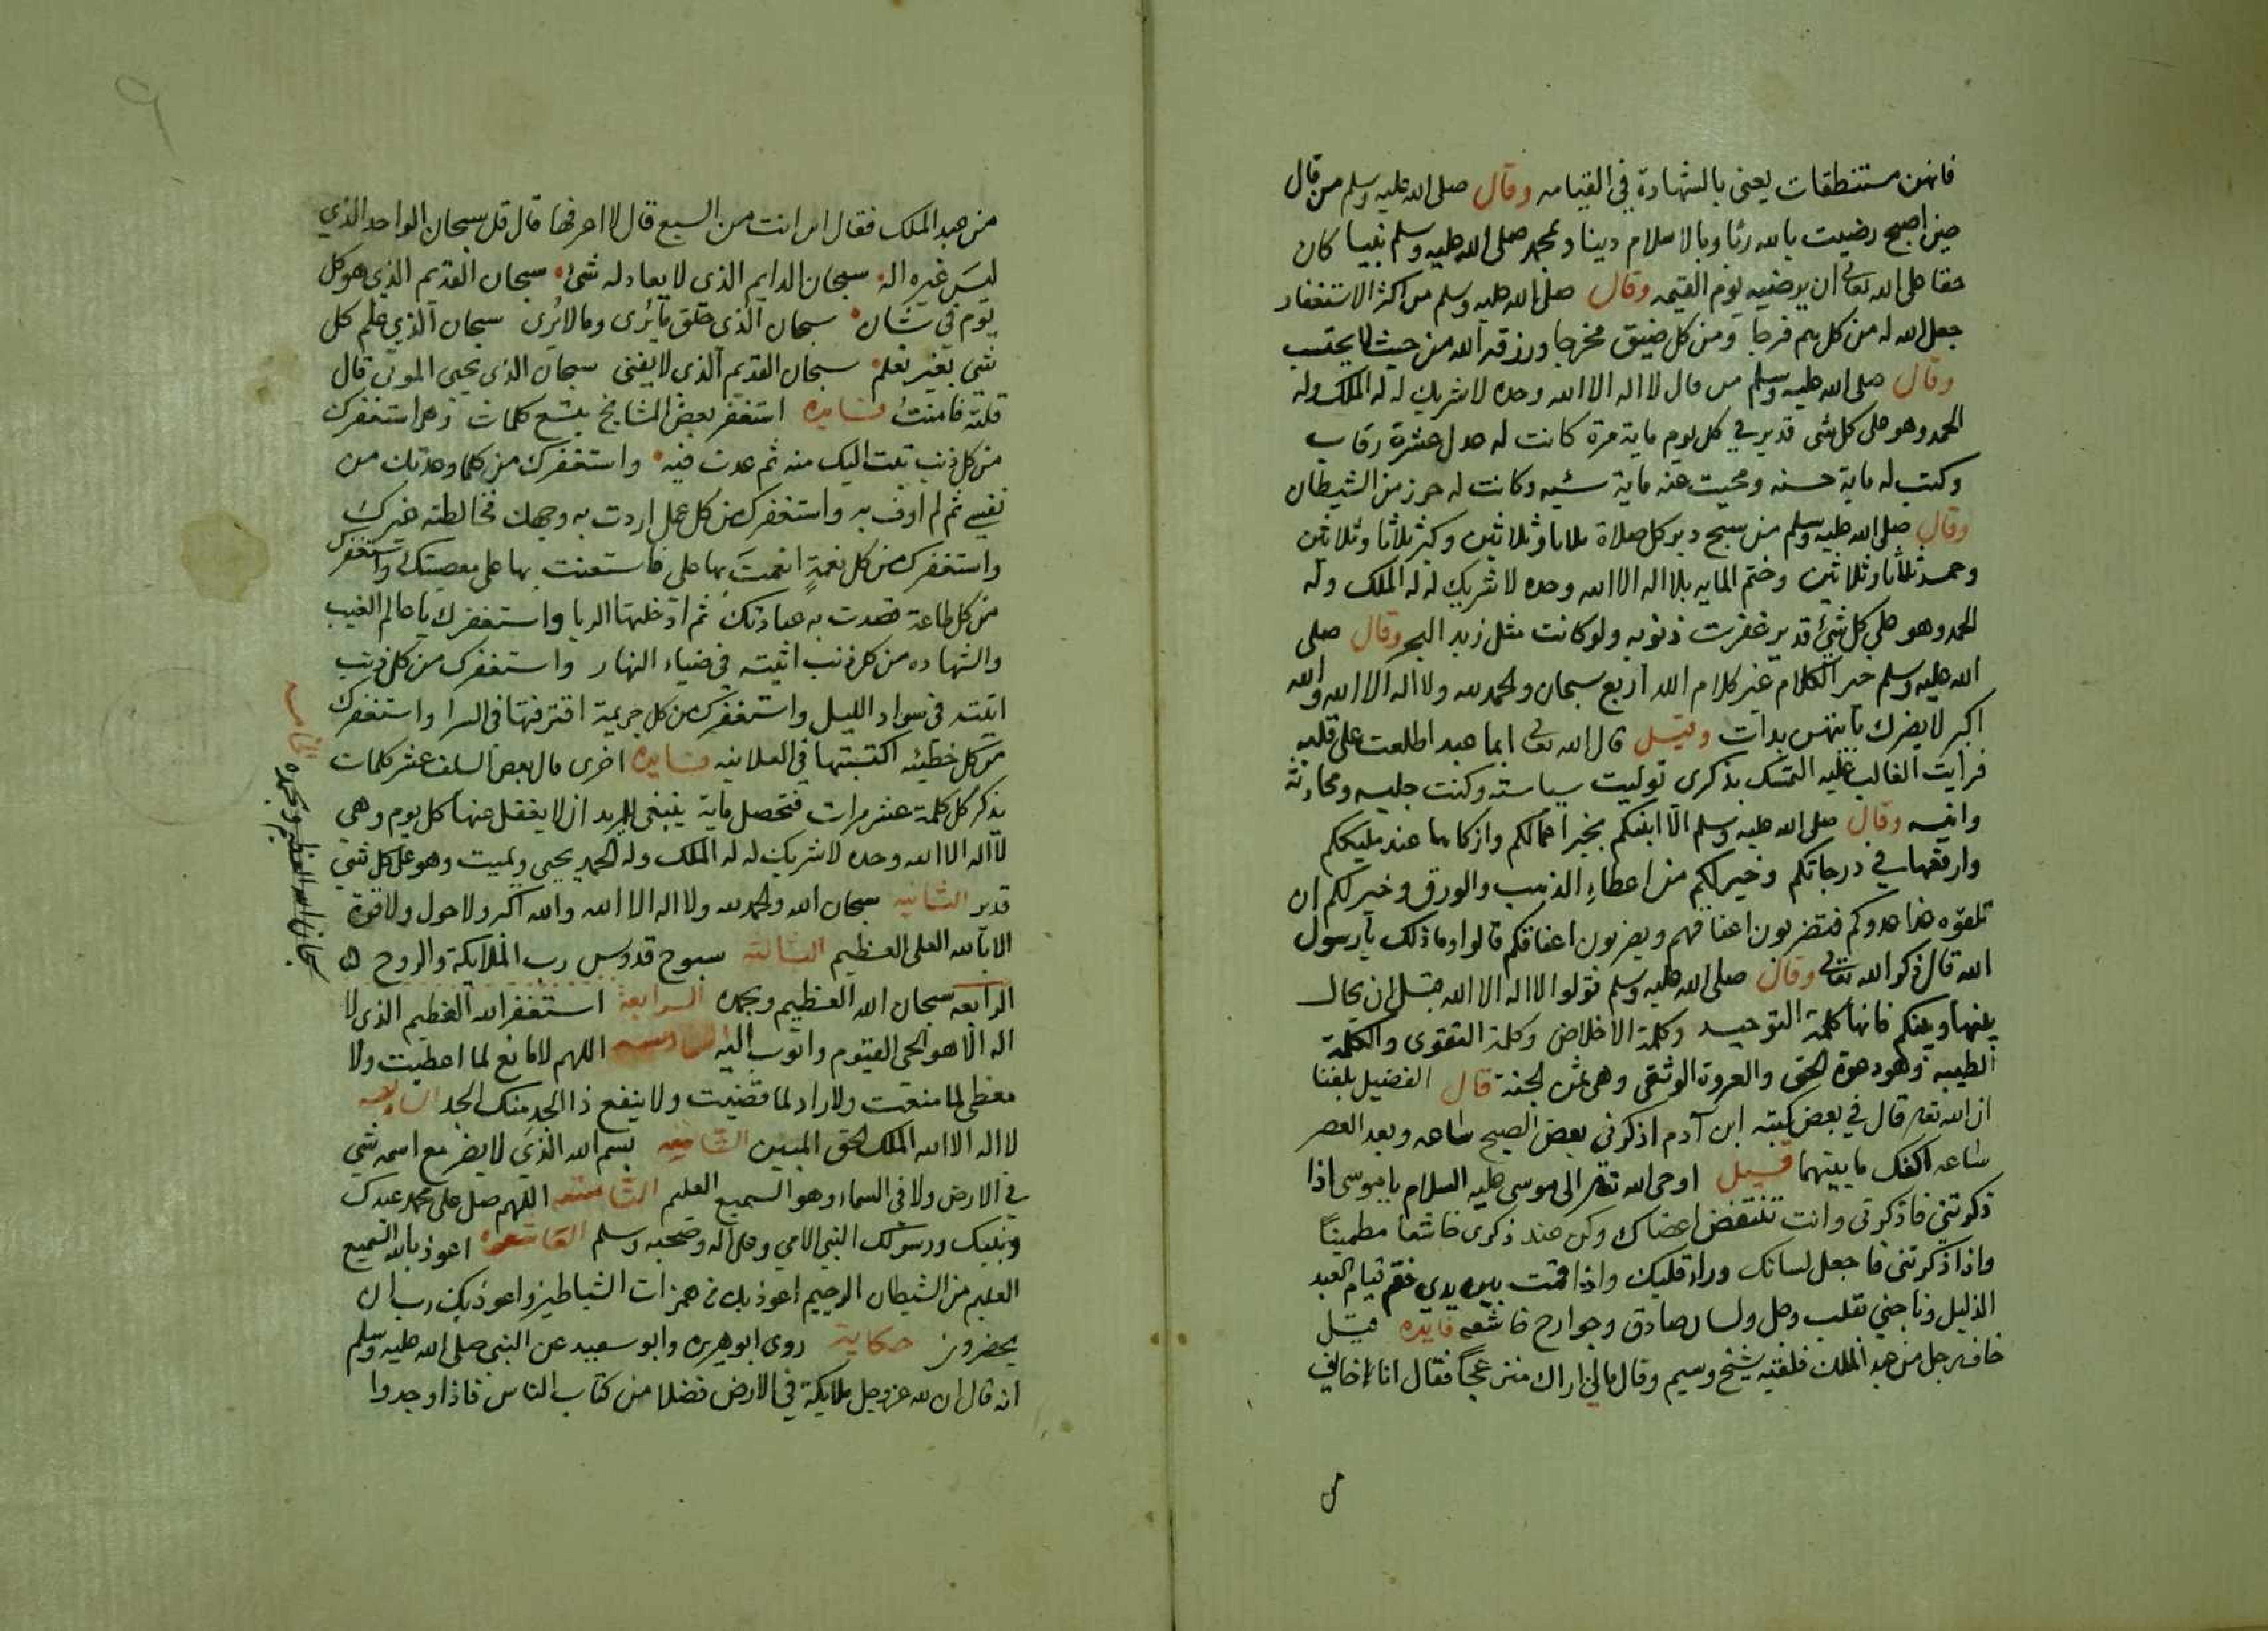 فانهن مستنطقات يعنى بالشهادة في القيامه وقال صلى الله عليه وسلم من قال
حين اصبح رضيت بالله ربا وبالاسلام دينا وبمحمد صلى الله عليه وسلم نبيا كان
حقا على الله تعالى ان يرضيه يوم القيمه وقال صلى الله عليه وسلم من اكثر الاستغفار
جعل الله له من كل هم فرجا ومن كل ضيق مخرجا ورزقه الله من حيث لا يحتسب
وقال صلى الله عليه وسلم من قال لا اله الا الله وحده لا شريك له له الملك وله
الحمد وهو على كل شى قدير في كل يوم ماية مرة كانت له عدل عشرة رقاب
وكتب له ماية حسنه ومحيت عنه ماية سئيه وكانت له حرز من الشيطان
وقال صلى الله عليه وسلم من سبح دبر كل صلاة ثلاثا وثلاثين وكبر ثلاثا وثلاثين
وحمد ثلاثا وثلاثين وختم المايه بلا اله الا الله وحده لا شريك له له الملك وله
الحمد وهو على كل شئ قدير غفرت ذنوبه ولو كانت مثل زبد البحر وقال صلى
الله عليه وسلم خير الكلام غير كلام الله اربع سبحان والحمد لله ولا اله الا الله والله
اكبر لا يضرك بايتهن بدات وقيل قال الله تعالى ايما عبد اطلعت على قلبه
فرايت الغالب عليه التمسك بذكرى توليت سياسته وكنت جليسه ومحادثه
وانيسه وقال صلى الله عليه وسلم الا انبئكم بخير اعمالكم وازكاها عند مليككم
وارفعها في درجاتكم وخير لكم من اعطاء الذهب والورق وخير لكم ان
تلقوه هذا عدوكم فتضربون اعناقهم ويضربون اعناقكم قالوا وما ذلك يا رسول
الله قال ذكر الله تعالى وقال صلى الله عليه وسلم قولوا لا اله الا الله قبل ان يحال
بينها وبينكم فانها كلمة التوحيد وكلمة الاخلاص وكلمة التقوى والكلمة
الطيبه وهو دعوة الحق والعروة الوثقى وهى ثمن الجنة قال الفضيل بلغنا
ان الله تعالى قال في بعض كتبه ابن آدم اذكرنى بعض الصبح ساعه وبعد العصر
ساعه اكفك ما بينهما قيل اوحى الله تعالى الى موسى عليه السلام يا موسى اذا
ذكرتنى فاذكرنى وانت تنتفض اعضاك وكن عند ذكرى خاشعا مطمينا
واذا ذكرتنى فاجعل لسانك وراء قلبك واذا قمت بين يدى فقم قيام العبد
الذليل وناجني بقلب وجل ولسان صادق وجوارح خاشعه فايده قيل
خاف رجل من عبد الملك فلقيه شيخ وسيم وقال مالى اراك منزعجا فقال انا اخايف
من
من عبد الملك فقال اين انت من السبع قال لا اعرفها قال قل سبحان الواحد الذي
ليس غيره اله سبحان الدايم الذى لا يعادله شئ سبحان القديم الذي هو كل
يوم في شان سبحان الذى خلق ما يرى وما لا يرى سبحان الذي علم كل
شي بغير تعلم سبحان القديم الذى لا يفنى سبحان الذى يحيى الموتى قال
قلته فامنت فايده استغفر بعض المشايخ بتسع كلمات وهى استغفرك
من كل ذنب تبت اليك منه ثم عدت فيه واستغفرك من كلما وعدتك من
نفسى ثم لم اوف به واستغفرك من كل عمل اردت به وجهك فخالطته غيرك
واستغفرك من كل نعمة انعمت بها على فاستعنت بها على معصيتك واستغفرك
من كل طاعة قصدت به عبادتك ثم ادخلتها الريا واستغفرك يا عالم الغيب
والشهاده من كل ذنب اتيته في ضياء النهار واستغفرك من كل ذنب
اتيته في سواد الليل واستغفرك من كل جريمة اقترفتها فى السرا واستغفرك
من كل خطيئه اكتسبتها في العلانيه فايده اخرى قال بعض السلف عشر كلمات
يذكر كل كلمة عشر مرات فتحصل ماية ينبغى للمريد ان لا يغفل عنها كل يوم وهى
لا اله الا الله وحده لا شريك له له الملك وله الحمد يحيى ويميت وهو على كل شي
قدير الثانيه سبحان الله والحمد لله ولا اله الا الله والله اكبر ولا حول ولا قوة
الا بالله العلى العظيم الثالثة سبوح قدوس رب الملايكة والروح
الرابعه سبحان الله العظيم وبحمده الرابعة استغفر الله العظيم الذى لا
اله الا هو الحى القيوم واتوب اليه السادسه اللهم لا مانع لما اعطيت ولا
معطى لما منعت ولا راد لما قضيت ولا ينفع ذا الجد منك الجد السابعه
لا اله الا الله الملك الحق المبين الثامنه بسم الله الذي لا يضر مع اسمه شي
في الارض ولا فى السماء وهو السميع العليم التاسعه اللهم صل على محمد عبدك
ونبيك ورسولك النبى الامي وعلى اله وصحبه وسلم العاشره اعوذ بالله السميع
العليم من الشيطان الرجيم اعوذ بك من همزات الشياطين واعوذ بك رب ان
يحضرون حكاية روى ابو هريره وابو سعيد عن النبى صلى الله عليه وسلم
انه قال ان لله عز وجل ملايكة في الارض فضلا من كتاب الناس فاذا وجدوا
سبحان الله العظيم وبحمده